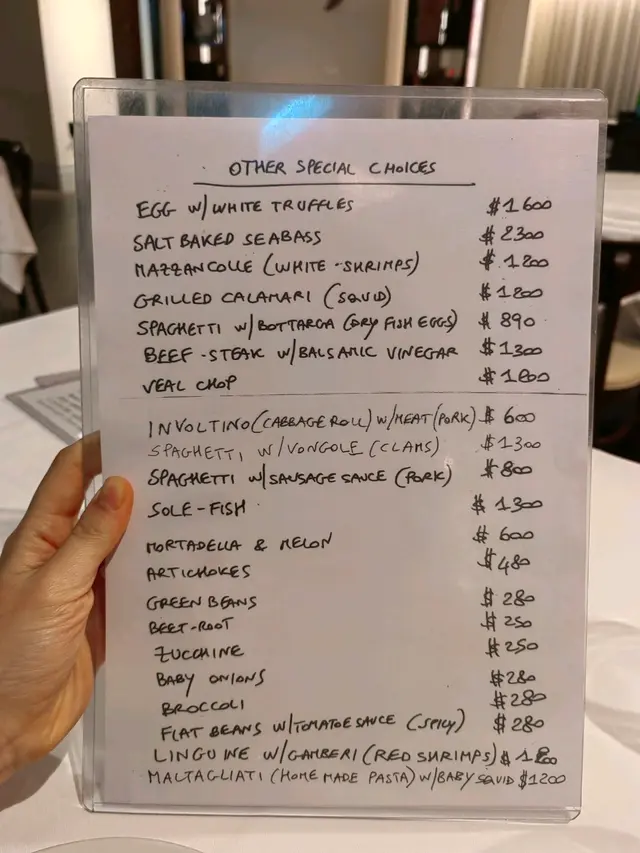 OTHER SPECIAL CHOICES
EGG W/WHITE TRUFFLES $1600
SALT BAKED SEABASS $2300
MAZZANCOLLE (WHITE-SHRIMPS) $1200
GRILLED CALAMARI (SQUID) $1200
SPAGHETTI W/BOTTARGA (DRY FISH EGGS) $890
BEEF-STEAK W/BALSAMIC VINEGAR $1300
VEAL CHOP
INVOLTINO (CABBAGE ROLL) W/MEAT (PORK) $600
SPAGHETTI W/VONGOLE (CLAMS) $1300
SPAGHETTI W/SAUSAGE SAUCE (PORK) $800
SOLE-FISH $1300
MORTADELLA & MELON $600
ARTICHOKES $480
GREEN BEANS $280
BEET-ROOT $250
ZUCCHINE $250
BABY ONIONS $280
BROCCOLI $280
FLAT BEANS W/TOMATOE SAUCE (SPICY) $280
LINGUINE W/GAMBERI (RED SHRIMPS)
MALTAGLIATI (HOME MADE PASTA) W/BABY SQUID $1200